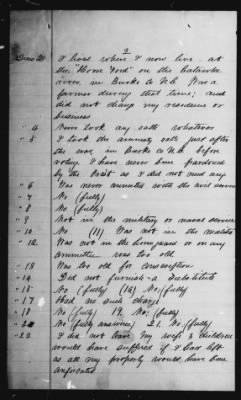 2
I lived where I now live - at
the "Horse Ford" on the Catawba
river, in Burke Co N.C. Was a
farmer during that time; and
did not change my residence or
business
" 4 Never took any oath whatever
" 5 I took the amnesty oath just after
the war, in Burke Co N.C. before
voting. I have never been pardoned
by the Prest as I did not need any
" 6 Was never connected with the civil service
" 7 No (fully)
" 8 No (fully)
" 9 Not in the military or naval service
" 10 No (11) Was not in the
" 12 Was not in the homeguard or on any
committee was too old
" 13 Was too old for conscription
" 14 Did not furnish a substitute
" 15 No (fully) (16) No (fully)
" 17 Had no such charge
" 18 No (fully) 19. No; (fully)
" 20 No (fully answered) 21. No; (fully)
" 22 I did not leave My wife & children
would have suffered if I had left
as all my property would have been